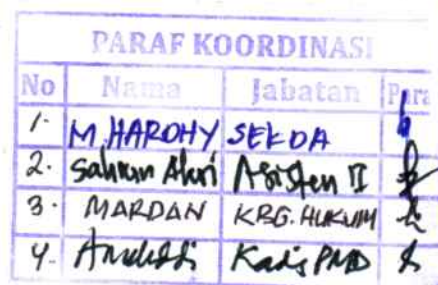 PARAF KOORDINASI
No Nama Jabatan Para
1. M. HAROHY SEKDA
2. Asisten II
3. MARDAN KBG. HUKUM
4. Kadis PMD